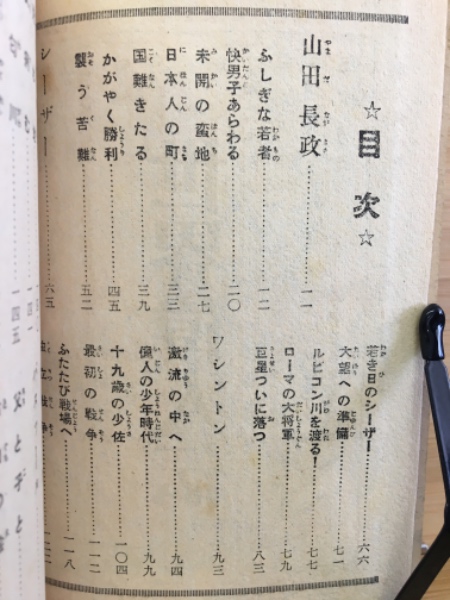 ☆目次☆
山田長政……一一
ふしぎな若者……一二
快男子あらわる……二〇
未開の蛮地……二七
日本人の町……三三
国難きたる……三九
かがやく勝利……四五
襲う苦難……五二
シーザー……六五
若き日のシーザー……六六
大望への準備……七一
ルビコン川を渡る!……七七
ローマの大将軍……七九
巨星ついに落つ……八三
ワシントン……九三
激流の中へ……九四
偉人の少年時代……九九
十九歳の少佐……一〇四
最初の戦争……一一二
ふたたび戦場へ……一一八